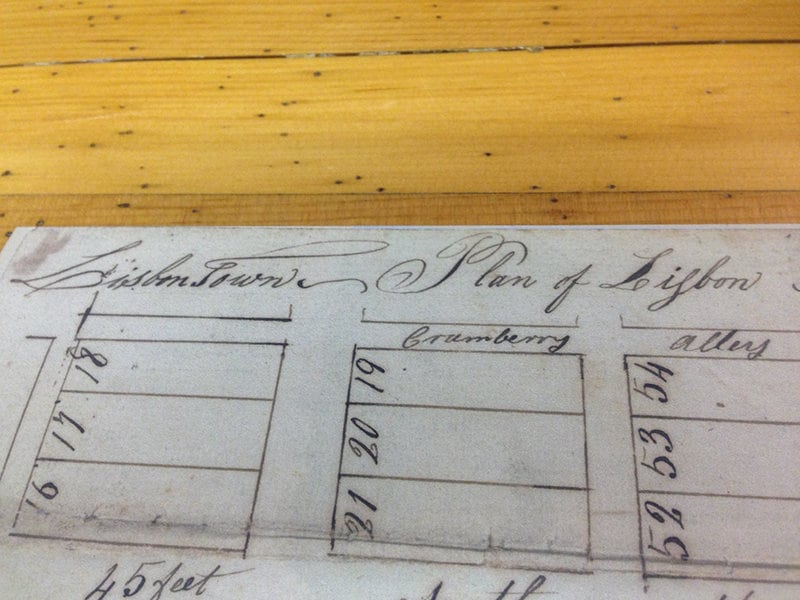 Lisbon Town Plan of Lisbon
Cramberry Alley
18 19 54
17 20 53
16 21 52
45 feet